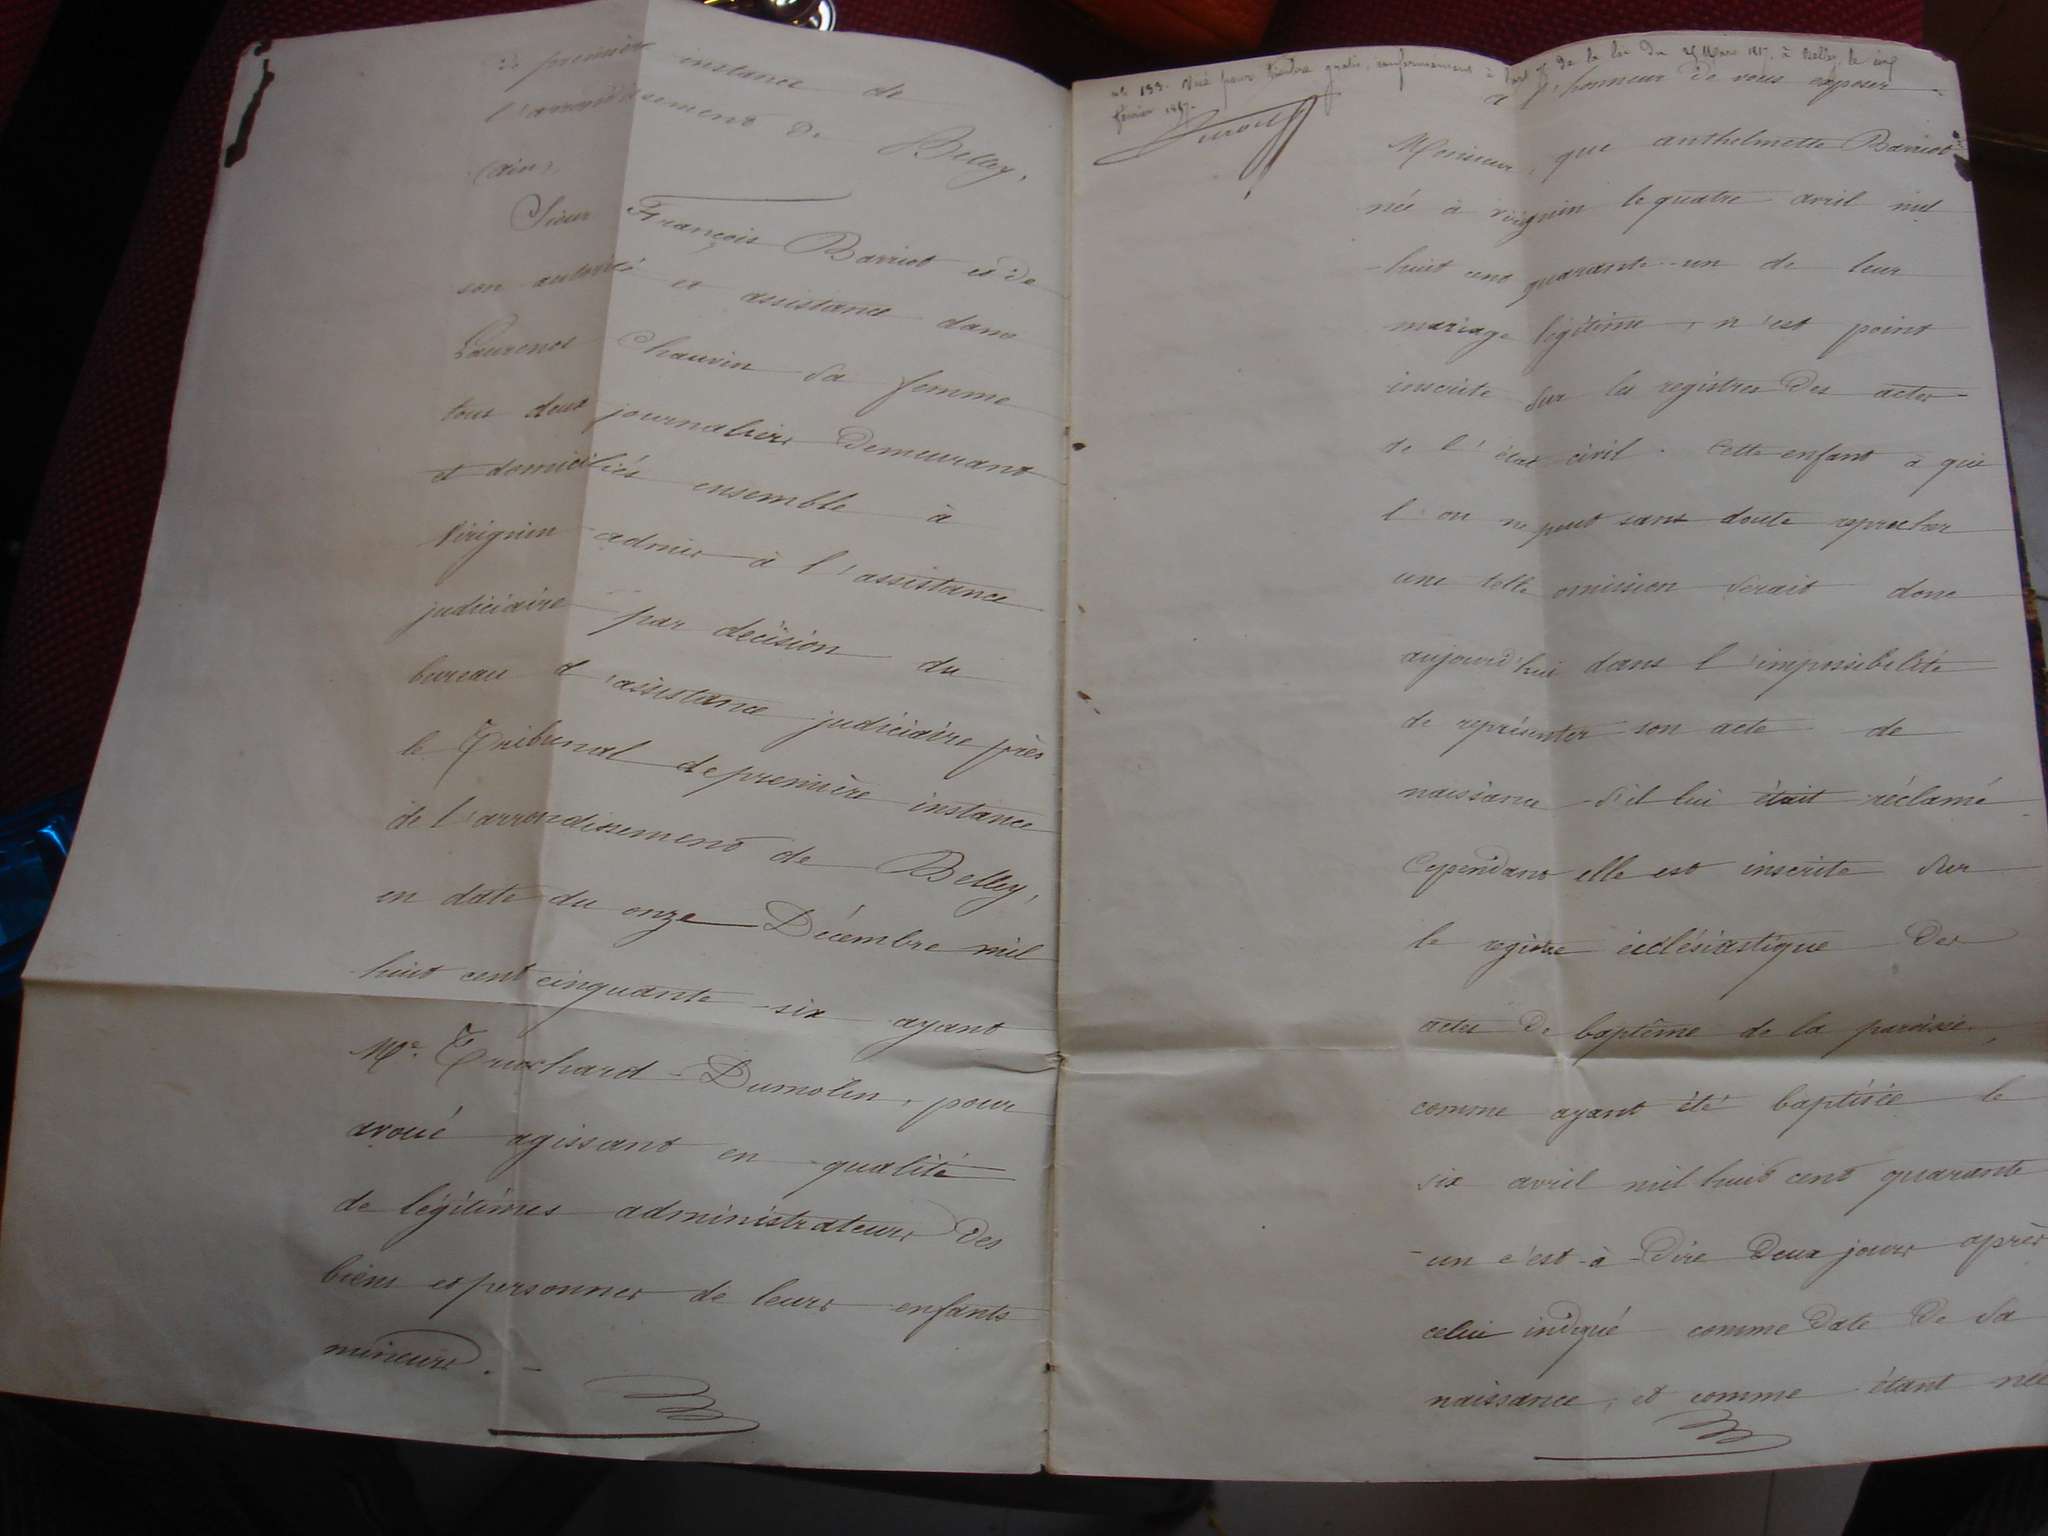 de première instance de
l'arrondissement de Belley,
(ain),
Sieur François Barriot et de
son autorité et assistance dame
Laurence Chauvin sa femme
tous deux journaliers demeurant
et domiciliés ensemble à
Virignin admis à l'assistance
judiciaire par décision du
bureau d'assistance judiciaire près
le Tribunal de première instance
de l'arrondissement de Belley,
en date du onze Décembre mil
huit cent cinquante-six ayant
Me. Truchard-Dumolin, pour
avoué agissant en qualité
de légitimes administrateurs des
biens et personnes de leurs enfants
mineurs. -
no 199. Visé pour timbre gratis, conformément à l'art de la loi du 25 Mars 1817. à Belley, le cinq
février 1857.
a l'honneur de vous exposer
Monsieur, que anthelmette Barriot
née à virignin le quatre avril mil
huit cent quarante-un de leur
mariage légitime, n'est point
inscrite sur les registres des actes
de l'état civil. Cette enfant à qui
l'on ne peut sans doute reprocher
une telle omission serait donc
aujourd'hui dans l'impossibilité
de représenter son acte de
naissance s'il lui était réclamé
Cependant elle est inscrite sur
le registre écclésiastique des
actes de baptême de la paroisse,
comme ayant été baptisée le
six avril mil huit cent quarante
-un c'est-à-dire deux jours après
celui indiqué comme date de sa
naissance, et comme étant née